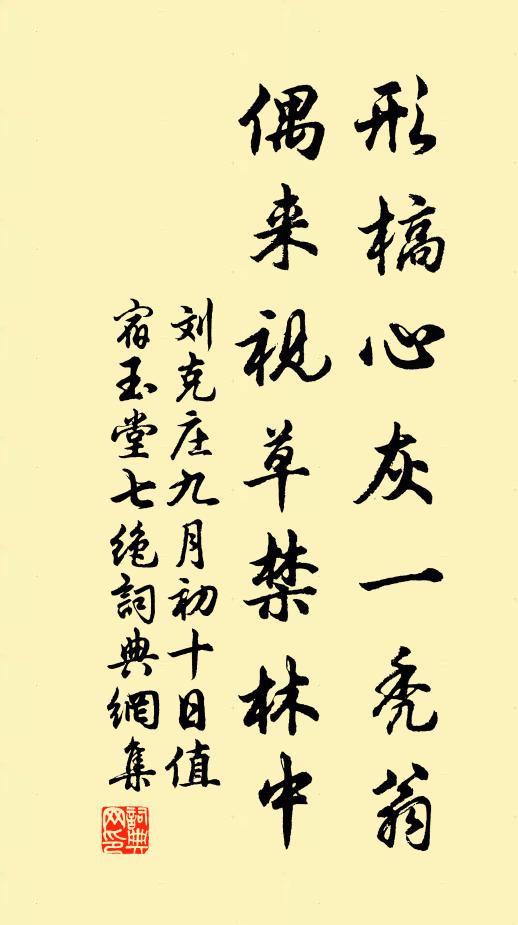 形槁心灰一秃翁
偶来视草禁林中
刘克庄九月初十日值
宿玉堂七绝詞典網集
詞典网印